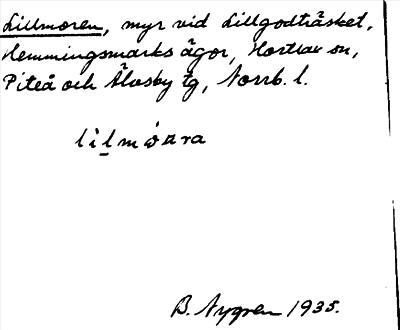 Lillmoren, myr vid Lillgodträsket,
Hemmingsmarks ägor, Hortlax sn,
Piteå och Älvsby tg, Norrb. l.
B. Nygren 1935.